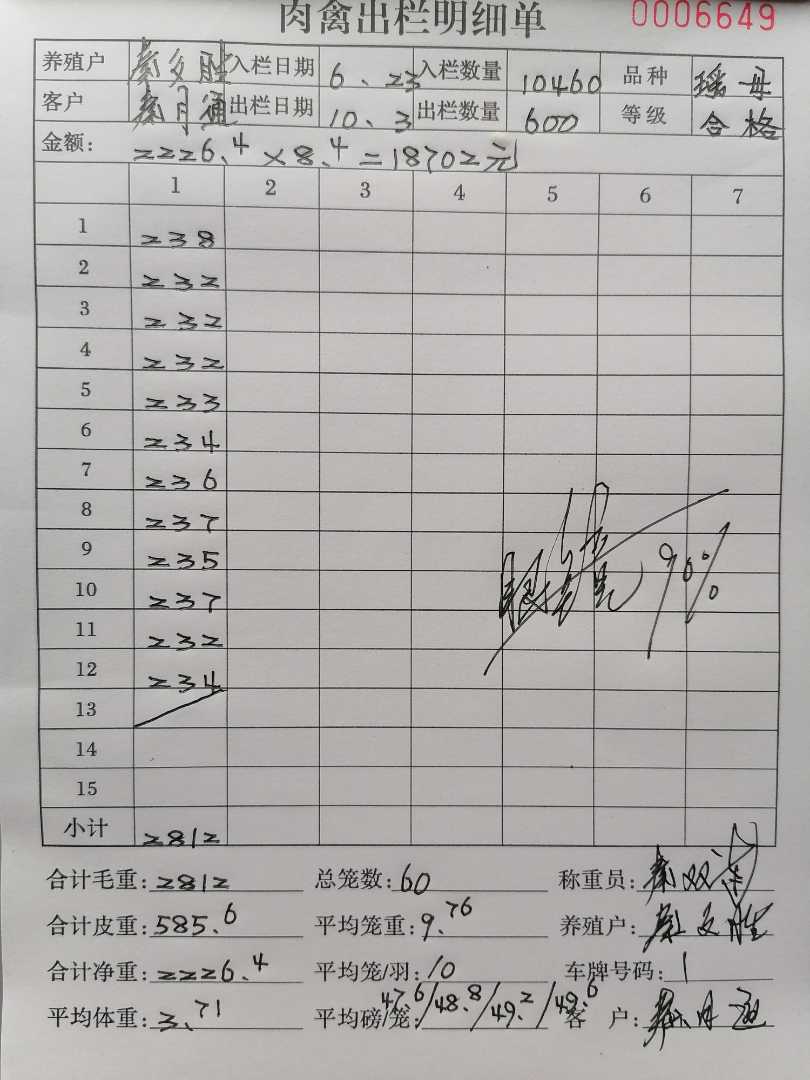 肉禽出栏明细单 0006649
养殖户 秦文胜 入栏日期 6、23 入栏数量 10460 品种 瑶母
客户 秦月通 出栏日期 10、3 出栏数量 600 等级 合格
金额: 2226.4×8.4=18702元
1 2 3 4 5 6 7
1 238
2 232
3 232
4 232
5 233
6 234
7 236
8 237
9 235
10 237
11 232
12 234
13
14
15
小计 2812
90%
合计毛重: 2812 总笼数: 60 称重员: 秦双
合计皮重: 585.6 平均笼重: 9.76 养殖户: 秦文胜
合计净重: 2226.4 平均笼/羽: 10 车牌号码: 1
平均体重: 3.71 平均磅/笼: 47.6/48.8/49.2/49.6 客户: 秦月通